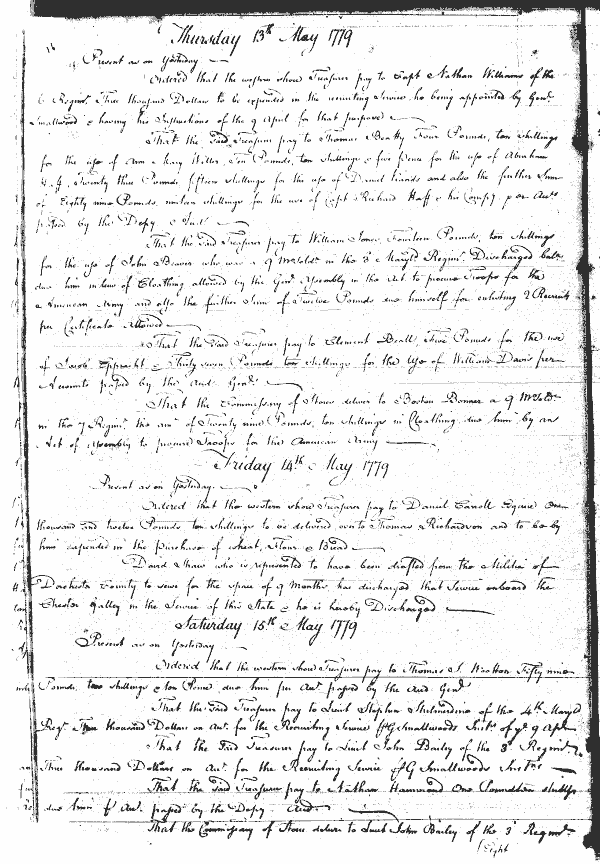 Thursday 13th May 1779
Present as on Yesterday
Ordered that the western shore Treasurer pay to Capt Nathan Williams of the
6 Regimt. Three thousand Dollars to be expended in the recruiting Service he being appointed by Genl.
Smallwood & having his Instructions of the 9 April for that purpose
That the said Treasurer pay to Thomas Beatty Four Pounds, ten shillings
for the use of Ann & Mary Miller, Ten Pounds, ten shillings & five Pence for the use of Abraham
Twenty three Pounds fifteen shillings for the use of Daniel and also the further Sum
of Eighty nine Pounds, shillings for the use of Capt Richard & his Compy. p or Acct.
passed by the Depy.
That the said Treasurer pay to William Jones Fourteen Pounds, ten shillings
for the use of John Beaver who was a 9 Mo. Soldr. in the 3d Maryld Regimt. Discharged bale.
due him in lieu of Cloathing allowed by the Genl. Assembly in the Act to procure Troops for the
American Army and also the further Sum of Twelve Pounds due himself for enlisting 2 Recruits
per Certificate allowed
That the said Treasurer pay to Clement Beall, Five Pounds for the use
of Jacob & Thirty seven Pounds ten shillings for the Use of William Davis per
Accounts passed by the Aud. Genl.
That the Commissary of Stores deliver to a 9 Mo. Soldr.
in the 7 Regimt. the amt. of Twenty nine Pounds, ten shillings in Cloathing due him by an
Act of Assembly to procure Troops for the American Army
Friday 14th May 1779
Present as on Yesterday
Ordered that the western shore Treasurer pay to Daniel Carroll Esquire One
thousand and twelve Pounds ten shillings to be delivered over to Thomas Richardson and to be by
him expended in the purchase of wheat, Flour & Bread
David Shaw who is represented to have been drafted from the Militia of
Dorchester County to serve for the space of 9 Months has discharged that Service onboard the
Chester Galley in the Service of this State & he is hereby Discharged
Saturday 15th May 1779
Present as on Yesterday
Ordered that the western shore Treasurer pay to Thomas S. Wootton Fifty nine
Pounds, two shillings & ten Pence due him per Act. passed by the Aud Genl.
That the said Treasurer pay to Lieut Stephen of the 4th Maryld
Regt. Three thousand Dollars on Act. for the Recruiting Service G Smallwoods Insts. of ye. 9 Apr.
That the said Treasurer pay to Lieut John Bailey of the 3d Regimt.
Three thousand Dollars on Act. for the Recruiting Service G Smallwoods Insts.
That the said Treasurer pay to Nathan Hammond One shills
due him p Act. passed by the Depy. Aud
That the Commissary of Stores deliver to Lieut John Bailey of the 3d Regimt.
Eight